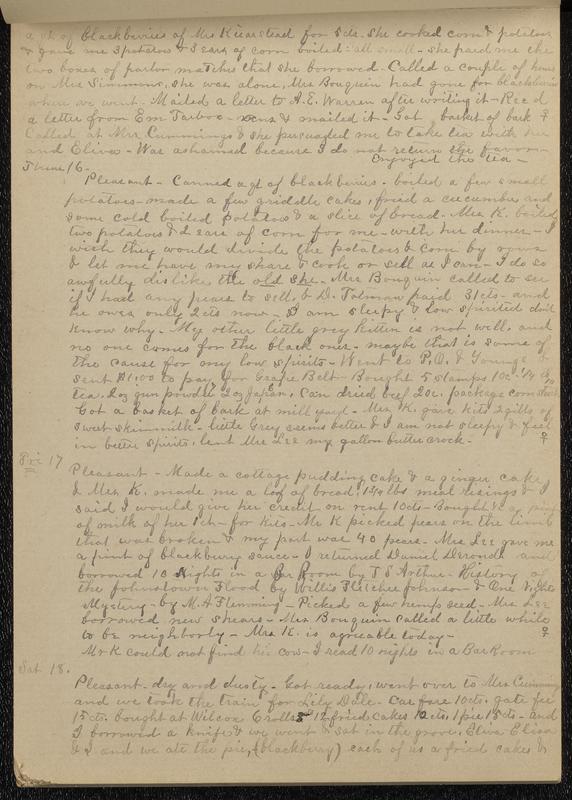 a qt of blackberries of Mrs Kierstead for 5cts. she cooked corn & potatoes
& gave me 3 potatoes & 3 ears of corn boiled: all small - she paid me the
two boxes of parlor matches that she borrowed. Called a couple of hours
on Mrs Simmons, she was alone, Mrs Bouquin had gone for blackberries
when we went. Mailed a letter to A.E. Warren after writing it - Rec'd
a letter from Em Tarbox - & mailed it - Got basket of bark &
Called at Mrs Cummings & she persuaded me to take tea with her
and Eliva - Was ashamed because I do not return the favors -
Enjoyed the tea -
Thurs 16 -
Pleasant - Canned a qt of blackberries. boiled a few small
potatoes - made a few griddle cakes, fried a cucumber and
some cold boiled potatoes & a slice of bread. Mrs K. boiled
two potatoes & 2 ears of corn for me - with her dinner - I
wish they would divide the potatoes & corn by rows
& let me have my share & cook or sell as I can - I do so
awfully dislike the old she. Mrs Bouquin called to see
if I had any pears to sell, & D. Tolman paid 31cts - and
he owes only 2cts now - I am sleepy & low spirited don't
know why - My other little grey kitten is not well, and
no one comes for the black one - maybe that is some of
the cause for my low spirits - Went to P.O. & Youngs
sent $1.00 to pay for Grape Belt - Bought 5 stamps 10c. 1/4 lb
tea, 2oz gun powder 2oz Japan, can dried beef 20c. package corn starch
Got a basket of bark at mill yard - Mrs K. gave kits 2 gills of
sweet skimmilk - little Grey seems better & I am not sleepy & feel
in better spirits, lent Mrs Lee my gallon butter crock -
Fri 17
Pleasant - Made a cottage pudding cake & a ginger cake
& Mrs K. made me a loaf of bread, 1 3/4 lbs meal risings & I
said I would give her credit on rent 10cts - Bought a pint
of milk of her 1ch - for kits - Mr K picked pears on the limb
that was broken & my part was 40 pears - Mrs Lee gave me
a pint of blackberry sauce - I returned Daniel Deronda and
borrowed 10 Nights in a Bar Room by T S Arthur - History of
the Johnstown Flood by Willis Fletcher Johnson - & One Nights
Mystery - by M.A Flemming - Picked a few hemp seed - Mrs Lee
borrowed new shears - Mrs Bouquin called a little while
to be neighborly - Mrs K. is agreable today -
Mr K could not find his cow - I read 10 nights in a Bar Room
Sat 18.
Pleasant - dry and dusty - Got ready, went over to Mrs Cummings
and we took the train for Lily Dale - Car fare 10cts. gate fee
15cts. bought at Wilcox & 12 fried cakes 10cts, 1 pie 15cts - and
I borrowed a knife & we went & sat in the grove, Eliva Eliza
& I and we ate the pie, (blackberry) each of us a fried cakes &